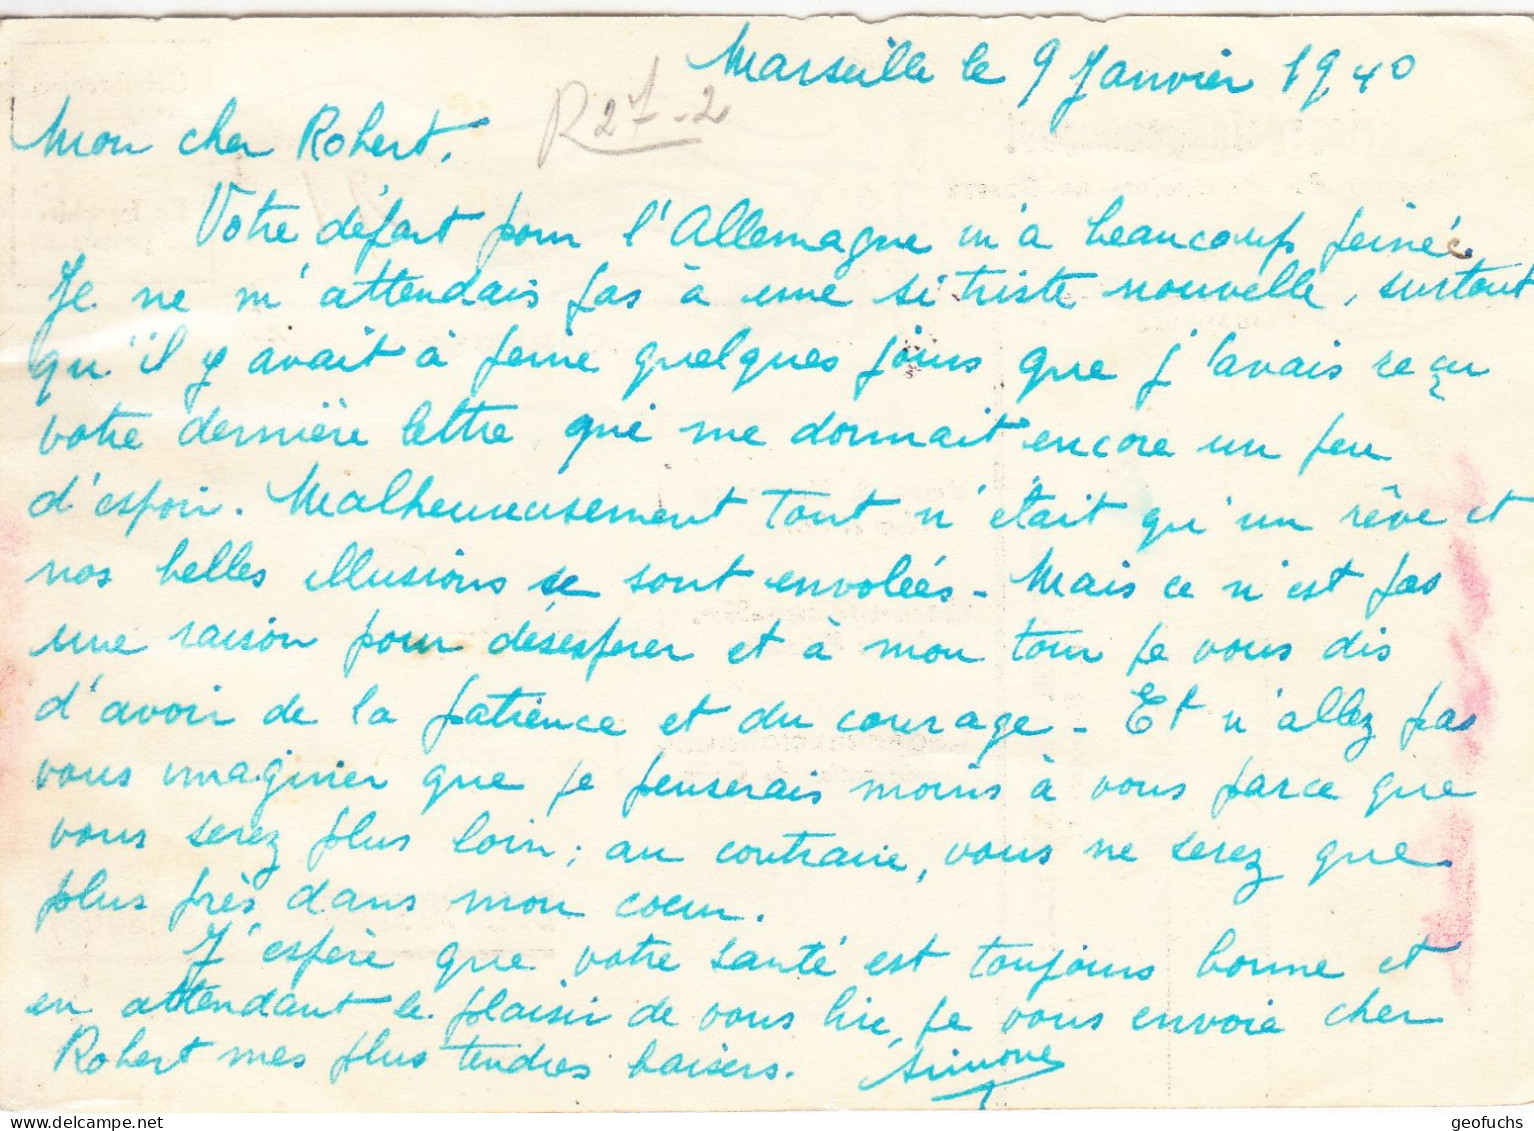 Marseille le 9 Janvier 1940
R 27-2
Mon cher Robert.
Votre départ pour l'Allemagne m'a beaucoup peinée
Je ne m'attendais pas à une si triste nouvelle, surtout
qu'il y avait à peine quelques jours que j'avais reçu
votre dernière lettre qui me donnait encore un peu
d'espoir. Malheureusement tout n'était qu'un rêve et
nos belles illusions se sont envolées - Mais ce n'est pas
une raison pour désespérer et à mon tour je vous dis
d'avoir de la patience et du courage - Et n'allez pas
vous imaginier que je penserais moins à vous parce que
vous serez plus loin ; au contraire, vous ne serez que
plus près dans mon coeur.
J'espère que votre santé est toujours bonne et
en attendant le plaisir de vous lire, je vous envoie cher
Robert mes plus tendres baisers. Simone
geofuchs